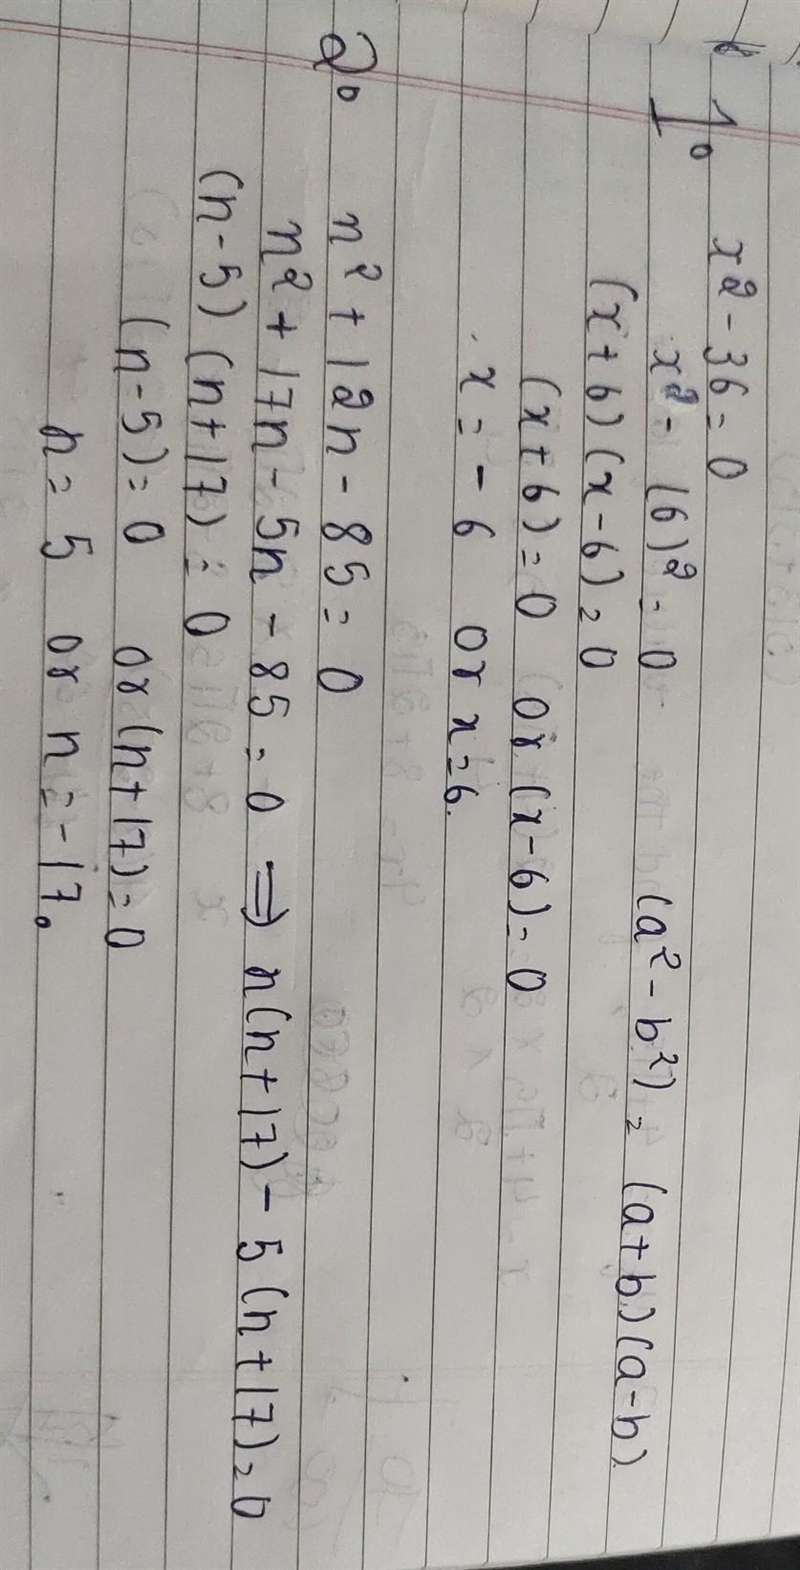 1. x² - 36 = 0
x² - (6)² = 0 (a² - b²) = (a+b)(a-b)
(x+6)(x-6) = 0
(x+6) = 0 or (x-6) = 0
x = -6 or x = 6.
2. n² + 12n - 85 = 0
n² + 17n - 5n - 85 = 0 ⇒ n(n+17) - 5(n+17) = 0
(n-5)(n+17) = 0
(n-5) = 0 or (n+17) = 0
n = 5 or n = -17.